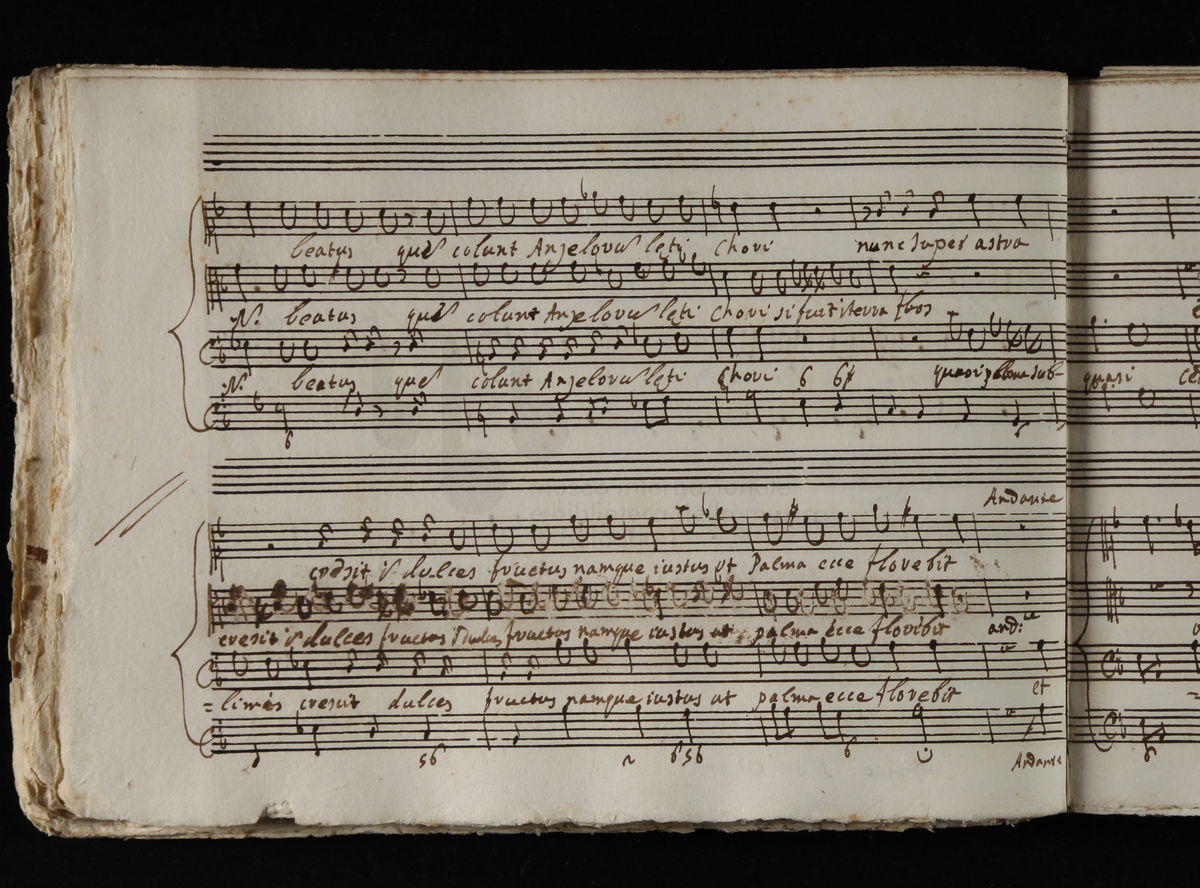 beatus que colunt Anjeloru leti Chori nunc super astra
N. beatus que colunt Anjeloru leti Chori si fuit iterra flos
N. beatus que colunt Anjeloru leti Chori quasi palma sub-
quasi
6 6
6
Andante
cresit i dulces fructus namque iustus ut Palma ecce florebit
cresit i dulces fructus dulces fructus namque iustus ut palma ecce floribit and:te
=limis cresit dulces fructus namque iustus ut palma ecce florebit et
56 656 6
Andante
6